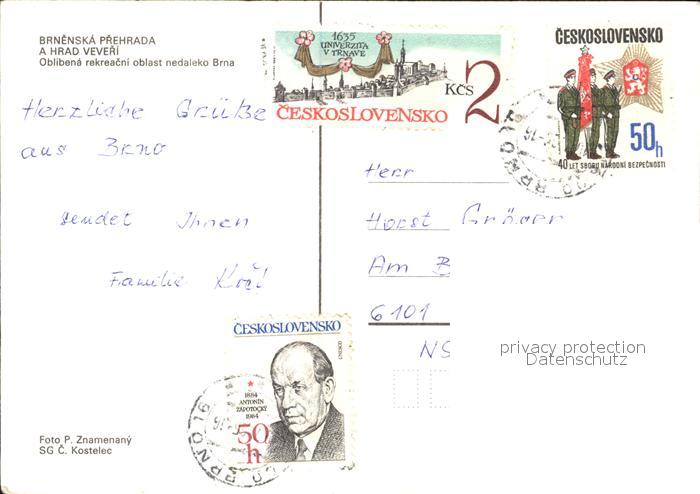 BRNĚNSKÁ PŘEHRADA
A HRAD VEVEŘÍ
Oblíbená rekreační oblast nedaleko Brna
Herzliche Grüße
aus Brno
sendet Ihnen
Familie
Foto P. Znamenaný
SG Č. Kostelec
1635
UNIVERZITA
V TRNAVE
Kčs 2
ČESKOSLOVENSKO
ČESKOSLOVENSKO
50h
40 LET SBORU NÁRODNÍ BEZPEČNOSTI
BRNO
Herr
Horst
Am B
6101
privacy protection
Datenschutz
ČESKOSLOVENSKO
UNESCO
1884
ANTONÍN
ZÁPOTOCKÝ
1984
50
h
BRNO